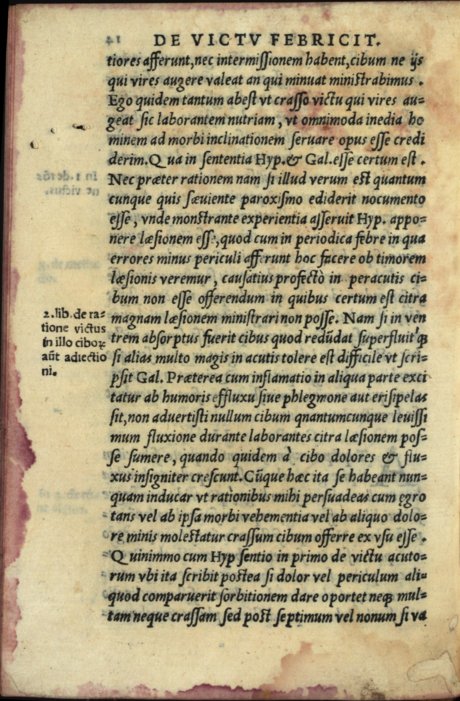 41 DE VICTV FEBRICIT.
tiores afferunt, nec intermissionem habent, cibum ne ijs
qui vires augere valeat an qui minuat ministrabimus.
Ego quidem tantum abest vt crasso victu qui vires au-
geat sic laborantem nutriam, vt omnimoda inedia ho
minem ad morbi inclinationem seruare opus esse credi
derim. Qua in sententia Hyp. & Gal. esse certum est.
Nec præter rationem nam si illud verum est quantum
cunque quis sæuiente paroxismo ediderit nocumento
esse, vnde monstrante experientia asseruit Hyp. appo-
nere læsionem esse, quod cum in periodica febre in qua
errores minus periculi afferunt hoc facere ob timorem
læsionis veremur, causatius profectò in peracutis ci-
bum non esse offerendum in quibus certum est citra
magnam læsionem ministrari non posse. Nam si in ven
trem absorptus fuerit cibus quod redũdat superfluit'q̃;
si alias multo magis in acutis tolere est difficile vt scri-
psit Gal. Præterea cum inflamatio in aliqua parte exci
tatur ab humoris effluxu siue phlegmone aut erisipelas
sit, non aduertisti nullum cibum qnantumcunque leuissi
mum fluxione durante laborantes citra læsionem pos-
se sumere, quando quidem à cibo dolores & flu-
xus insigniter crescunt. Cũque hæc ita se habeant nun-
quam inducar vt rationibus mihi persuadeas cum ęgro
tans vel ab ipsa morbi vehementia vel ab aliquo dolo-
re minis molestatur crassum cibum offerre ex vsu esse.
Quinimmo cum Hyp sentio in primo de victu acuto-
rum vbi ita scribit postea si dolor vel periculum ali-
quod comparuerit sorbitionem dare oportet neq; mul-
tam neque crassam sed post septimum vel nonum si va
2. lib. de ra-
tione victus
in illo cibor
aũt adiectio
ni.